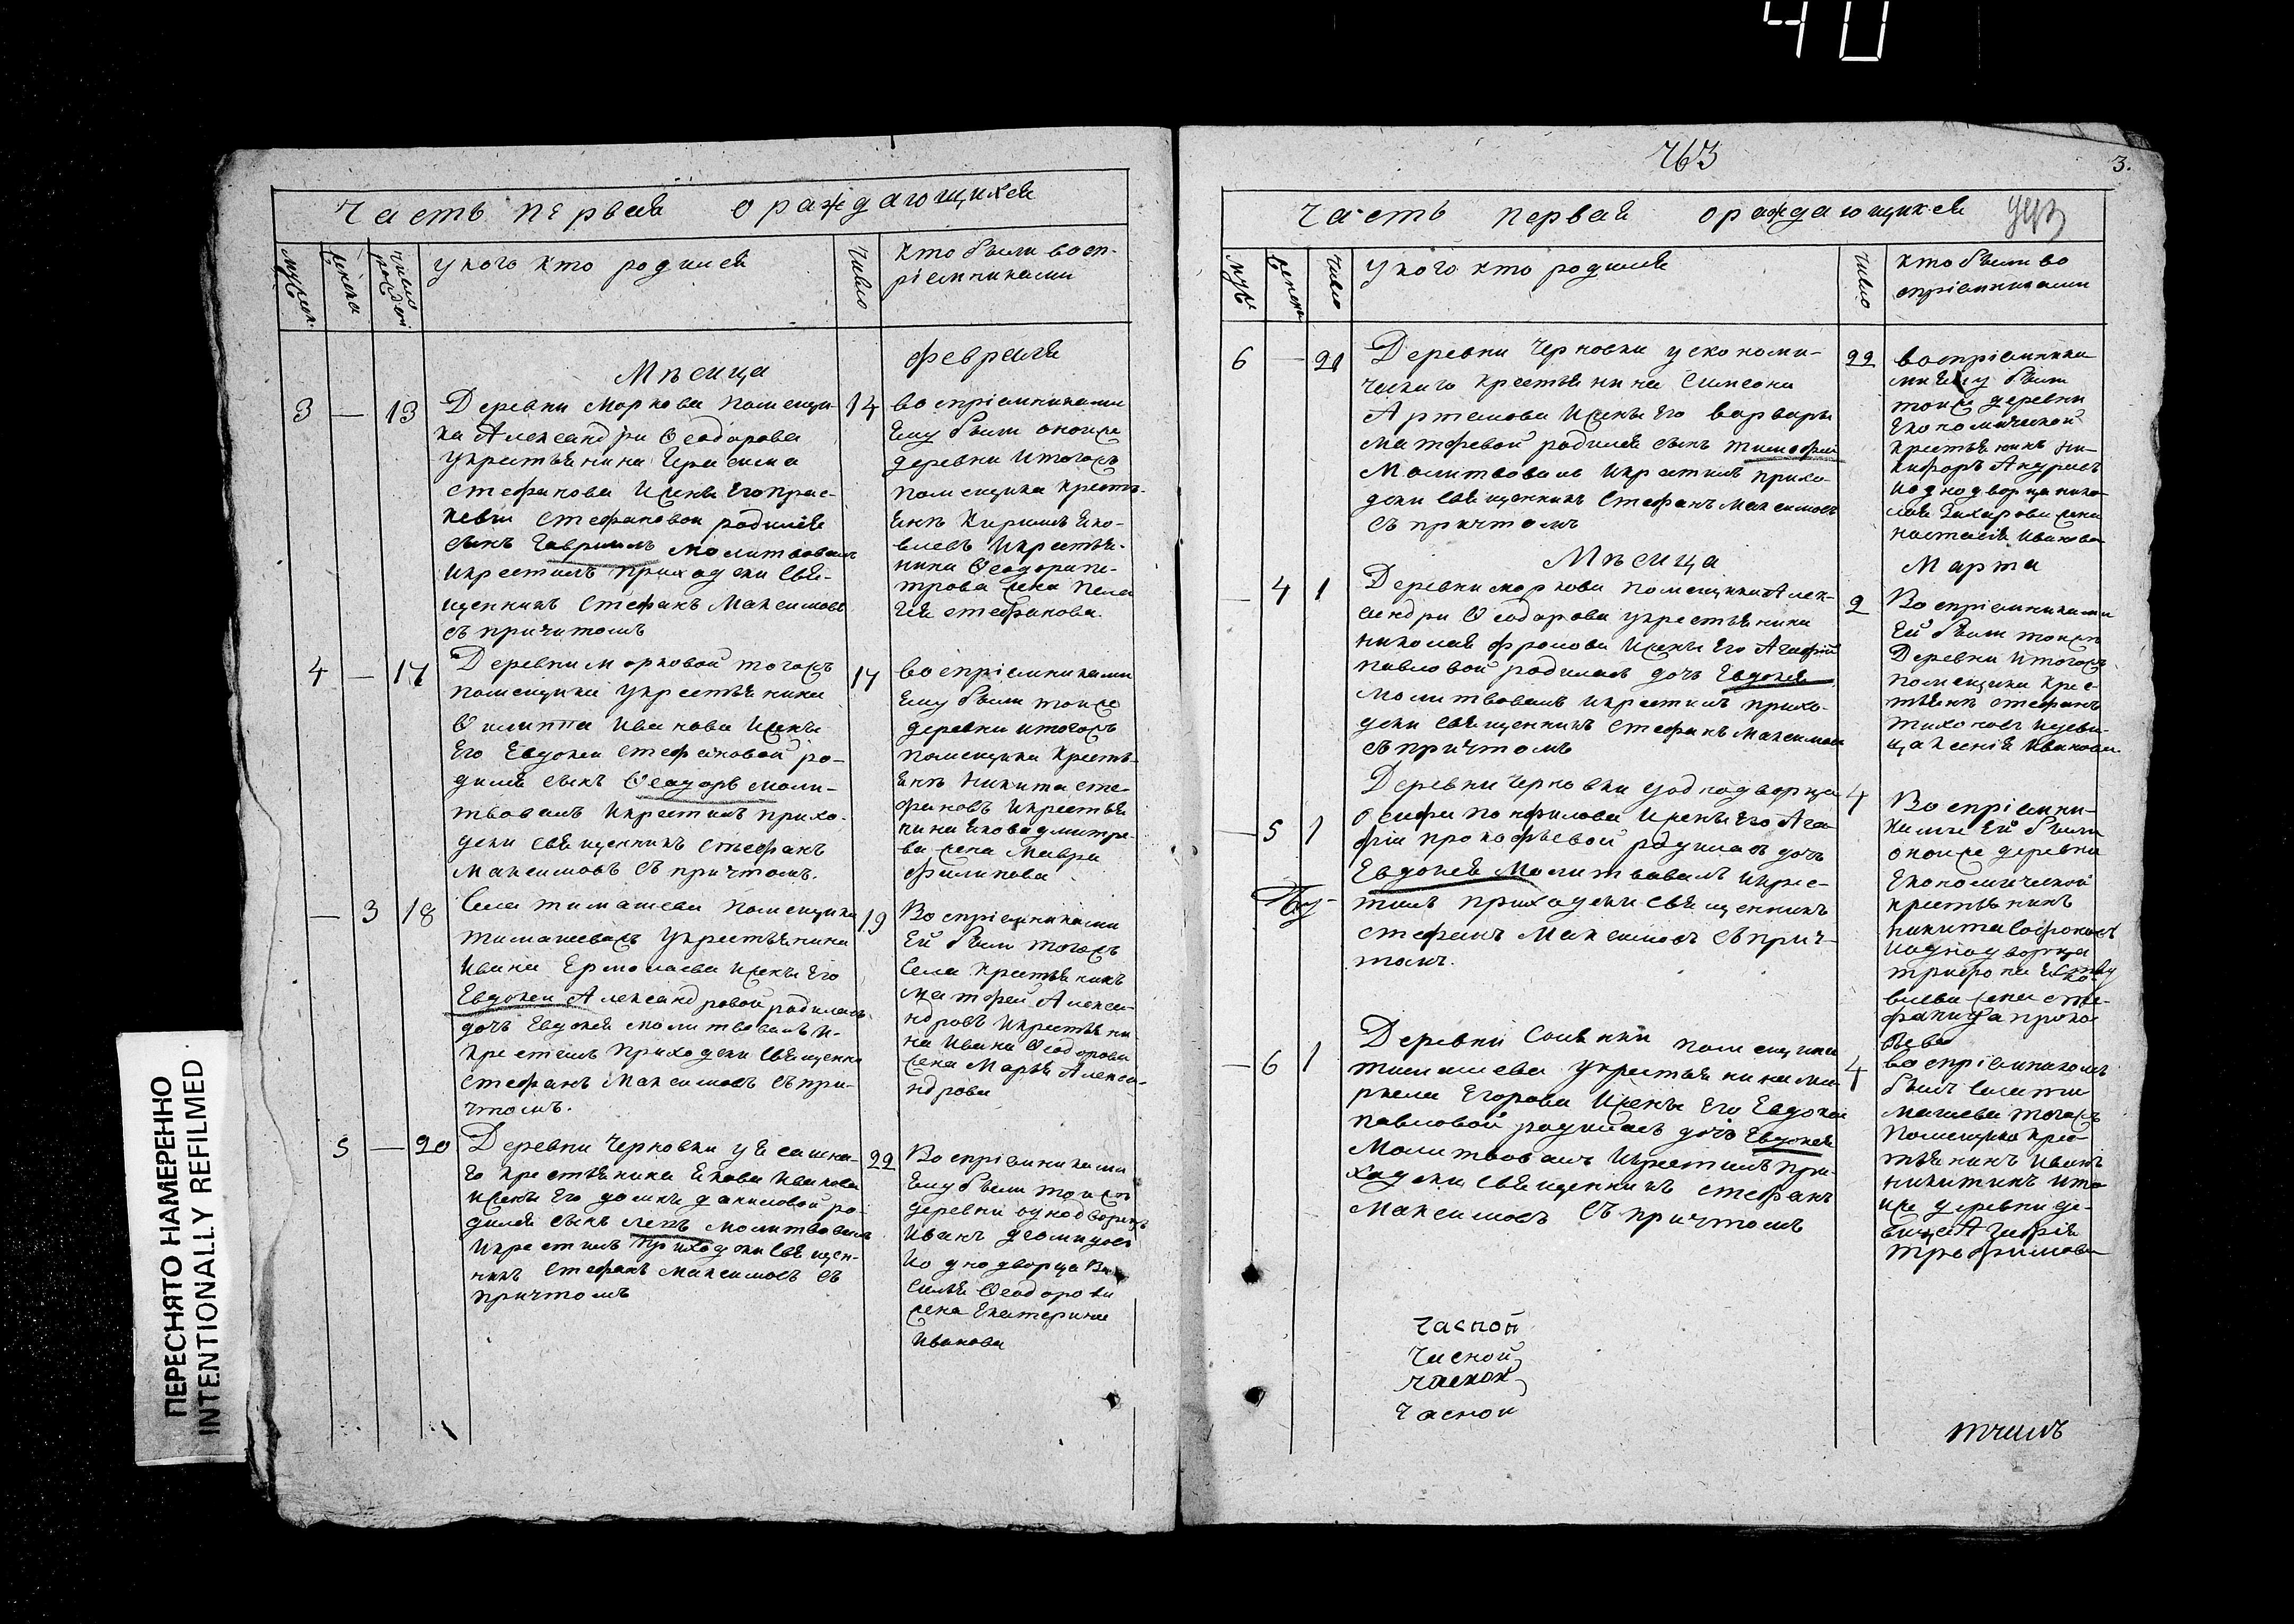 40
ПЕРЕСНЯТО НАМЕРЕННО
INTENTIONALLY REFILMED
Часть первая о раждающихся
мужеск.
женска
число рожден
у кого кто родился
число
кто были восп-
ріемниками
Мѣсяца
февраля
3 — 13
Деревни Моркова помещи-
ка Александра Ѳеодорова
у крестьянина Герасима
Стефанова и жены его Прас-
кевіи Стефановой родился
сынъ Гавріилъ молитвовалъ
и крестилъ приходски свя-
щенникъ Стефанъ Максимовъ
съ причтомъ
14
воспріемниками
ему были оной же
деревни и тогожъ
помещика кресть-
янъ Кирилъ Яко-
влевъ и крестья-
нина Ѳеодора пе-
трова жена Пела
гея стефанова.
4 — 17
Деревни морковой тогожъ
помещика у крестьянина
Ѳилиппа Иванова и жены
его Евдокеи стефановой ро-
дился сынъ Ѳеодоръ моли-
твовалъ и крестилъ прихо-
дски священникъ стефанъ
Максимовъ съ причтомъ.
17
воспріемниками
ему были той же
деревни и тогожъ
помещика кресть-
янъ Никита сте-
фановъ и крестья
нина Якова дмитре-
ва жена Мавра
филипова
— 3 18
Села тимашева помещика
тимашевахъ у крестьянина
Ивана Ермолаева и жены его
Евдокеи Александровой родилась
дочь Евдокея молитвовалъ и-
крестилъ приходски священни
стефанъ Максимовъ съ при-
чтомъ.
19
Воспріемниками
ей были тогожъ
села крестьянинъ
матфей Алекса-
ндровъ и крестьяни-
на Ивана Ѳеодорова
жена Марья Алекса-
ндрова
5 — 20
Деревни Черновки у ясашна-
го крестьянина Якова Иванова
и жены его домны даниловой ро-
дился сынъ левъ молитвовалъ
и крестилъ приходски священ-
никъ Стефанъ Максимовъ съ
причтомъ
22
Воспріемниками
ему были той жъ
деревни однодворецъ
Иванъ демидовъ
и однодворца Ва
силья Ѳеодорова
жена Екатерина
Иванова
763
3.
Часть первая о раждающихся
муж
женска
число
у кого кто родился
число
кто были во
спріемниками
6 — 21
Деревни Черновки у економи-
ческаго крестьянина Симеона
Артемова и жены его варвары
матфевой родился сынъ тимофей
Молитвовалъ и крестилъ прихо-
дски священникъ Стефанъ Максимовъ
съ причтомъ
22
воспріемника
ми ему были
той же деревни
економической
крестьянинъ Ни-
кифоръ Андреевъ
и однодворца нико-
лая Захарова жена
настасія Иванова
Мѣсяца
Марта
— 4 1
Деревни моркова помещика Алек-
сандра Ѳеодорова у крестьянина
николая фролова и жены его Агафіи
павловой родилась дочь Евдокея
молитвовалъ и крестилъ прихо-
дски священникъ Стефанъ Максимовъ
съ причтомъ
2
Воспріемниками
ей были той жъ
деревни и тогожъ
помещика крес-
тьянъ стефанъ
тихоновъ и деви-
ца Ксенія Иванова
— 5 1
Деревни Черновки у однодворца
Осифа Понфилова и жены его Ага-
фіи прокофьевой родилась дочь
Евдокея Молитвовалъ и крес-
тилъ приходски священникъ
стефанъ Максимовъ съ прич-
томъ.
4
Воспріемни-
ками ей были
оной же деревни
економической
крестьянинъ
никита Софоновъ
и однодворца
трифона Яко-
влева жена сте-
фанида проко
ѳьева
— 6 1
Деревни Сошки помещика
тимашева у крестьянина Ма-
ркела Егорова и жены его Евдокеи
павловой родилась дочь Евдокея
Молитвовалъ и крестилъ при-
ходски священникъ стефанъ
Максимовъ съ причтомъ
4
воспріемникомъ
былъ села ти
машева тогожъ
помещика крес-
тьянинъ Иванъ
никитинъ и то
й же деревни де-
вица Агафія
трофимова
часной
часной
часной
часной
тчилъ